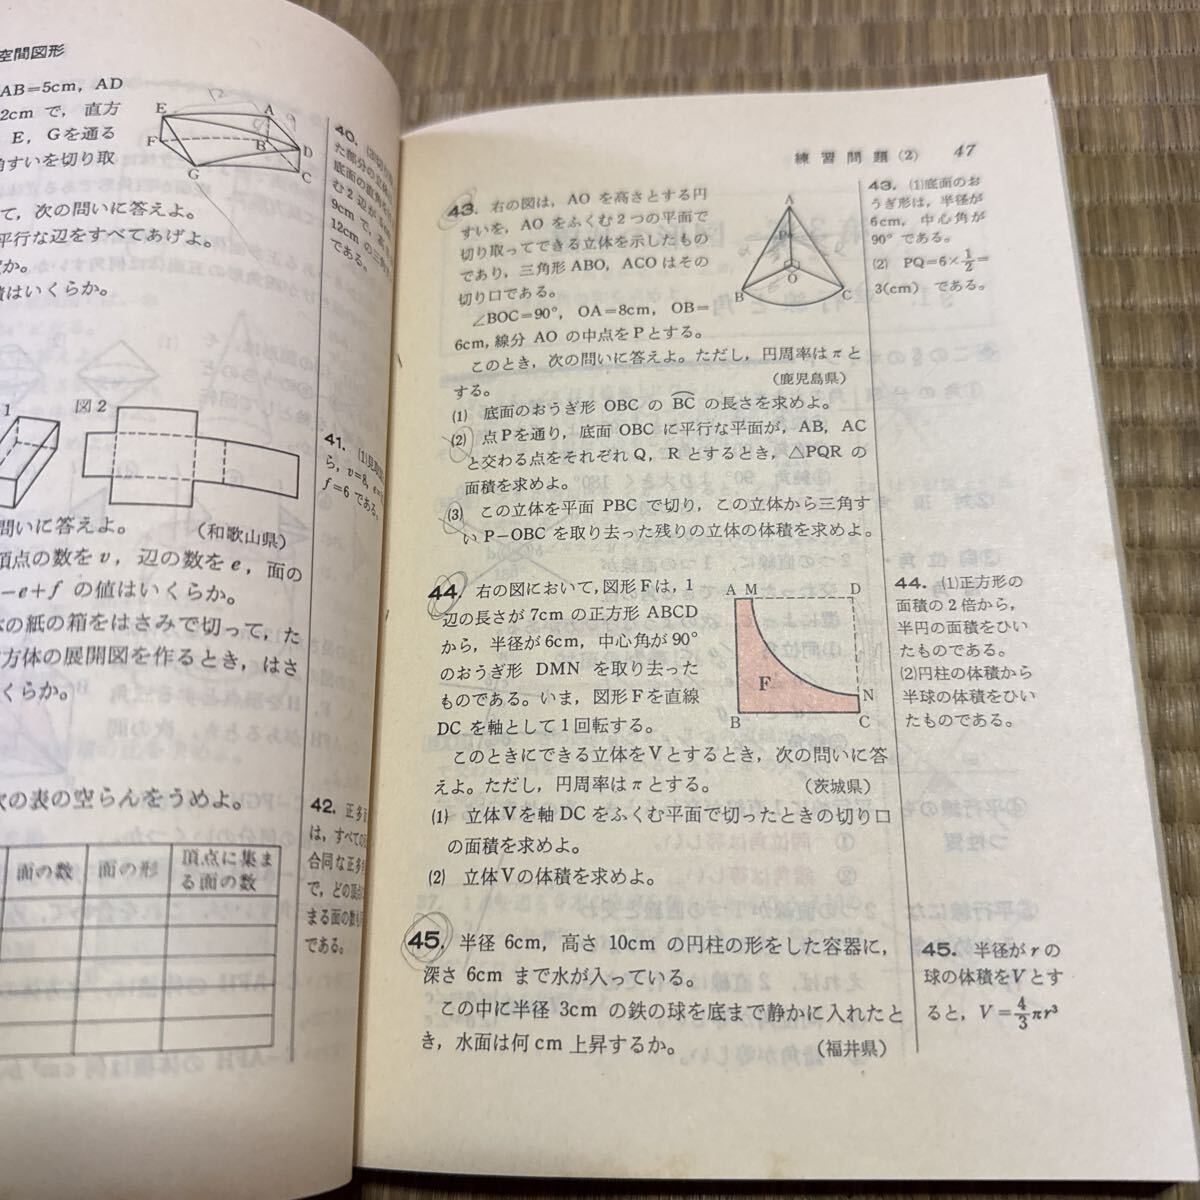 空間図形
AB=5cm, AD
2cm で, 直方
E, Gを通る
角すいを切り取
て, 次の問いに答えよ。
平行な辺をすべてあげよ。
か。
積はいくらか。
E
A
F
B
D
G
C
40.
41.
f=6 である。
9cm で,
12cm の三
である。
1
図2
問いに答えよ。
(和歌山県)
頂点の数を v, 辺の数を e, 面の
-e+f の値はいくらか。
の紙の箱をはさみで切って, た
方体の展開図を作るとき, はさ
くらか。
次の表の空らんをうめよ。
面の数 面の形 頂点に集ま
る面の数
42. 正多
は, すべての
合同な正多
で, どの頂
まる面の数も
である。
練習問題(2) 47
43. 右の図は, AO を高さとする円
すいを, AO をふくむ2つの平面で
切り取ってできる立体を示したもの
であり, 三角形 ABO, ACO はその
切り口である。
∠BOC=90°, OA=8cm, OB=
6cm, 線分 AO の中点を P とする。
このとき, 次の問いに答えよ。ただし, 円周率は π と
する。
(鹿児島県)
(1) 底面のおうぎ形 OBC の BC の長さを求めよ。
(2) 点Pを通り, 底面 OBC に平行な平面が, AB, AC
と交わる点をそれぞれ Q, R とするとき, △PQR の
面積を求めよ。
(3) この立体を平面 PBC で切り, この立体から三角す
い P-OBC を取り去った残りの立体の体積を求めよ。
A
P
O
B
C
43. (1)底面のお
うぎ形は, 半径が
6cm, 中心角が
90° である。
(2) PQ=6×1/2=
3(cm) である。
44. 右の図において, 図形 F は, 1
辺の長さが 7cm の正方形 ABCD
から, 半径が 6cm, 中心角が 90°
のおうぎ形 DMN を取り去った
ものである。いま, 図形 F を直線
DC を軸として1回転する。
このときにできる立体を V とするとき, 次の問いに答
えよ。ただし, 円周率は π とする。
(茨城県)
(1) 立体 V を軸 DC をふくむ平面で切ったときの切り口
の面積を求めよ。
(2) 立体 V の体積を求めよ。
A M
D
F
N
B
C
44. (1)正方形の
面積の2倍から,
半円の面積をひい
たものである。
(2)円柱の体積から
半球の体積をひい
たものである。
45. 半径 6cm, 高さ 10cm の円柱の形をした容器に,
深さ 6cm まで水が入っている。
この中に半径 3cm の鉄の球を底まで静かに入れたと
き, 水面は何 cm 上昇するか。
(福井県)
45. 半径が r の
球の体積を V とす
ると, V=4/3πr³